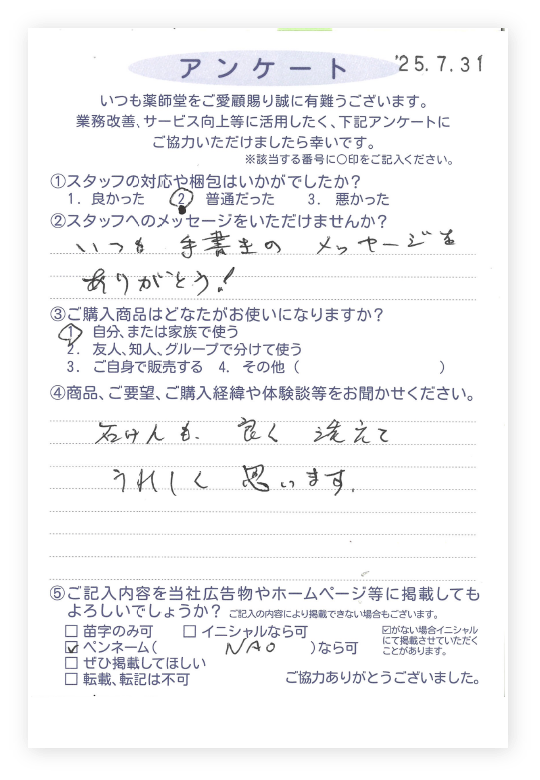 アンケート
'25.7.31
いつも薬師堂をご愛顧賜り誠に有難うございます。
業務改善、サービス向上等に活用したく、下記アンケートに
ご協力いただけましたら幸いです。
※該当する番号に〇印をご記入ください。
①スタッフの対応や梱包はいかがでしたか?
1. 良かった 2 普通だった 3. 悪かった
②スタッフへのメッセージをいただけませんか?
いつも 手書きの メッセージを
ありがとう!
③ご購入商品はどなたがお使いになりますか?
1 自分、または家族で使う
2. 友人、知人、グループで分けて使う
3. ご自身で販売する 4. その他( )
④商品、ご要望、ご購入経緯や体験談等をお聞かせください。
石けんも、良く 洗えて
うれしく 思います。
⑤ご記入内容を当社広告物やホームページ等に掲載しても
よろしいでしょうか? ご記入の内容により掲載できない場合もございます。
□ 苗字のみ可 □ イニシャルなら可
☑ ペンネーム( NAO )なら可
□ ぜひ掲載してほしい
□ 転載、転記は不可
☑がない場合イニシャル
にて掲載させていただく
ことがあります。
ご協力ありがとうございました。